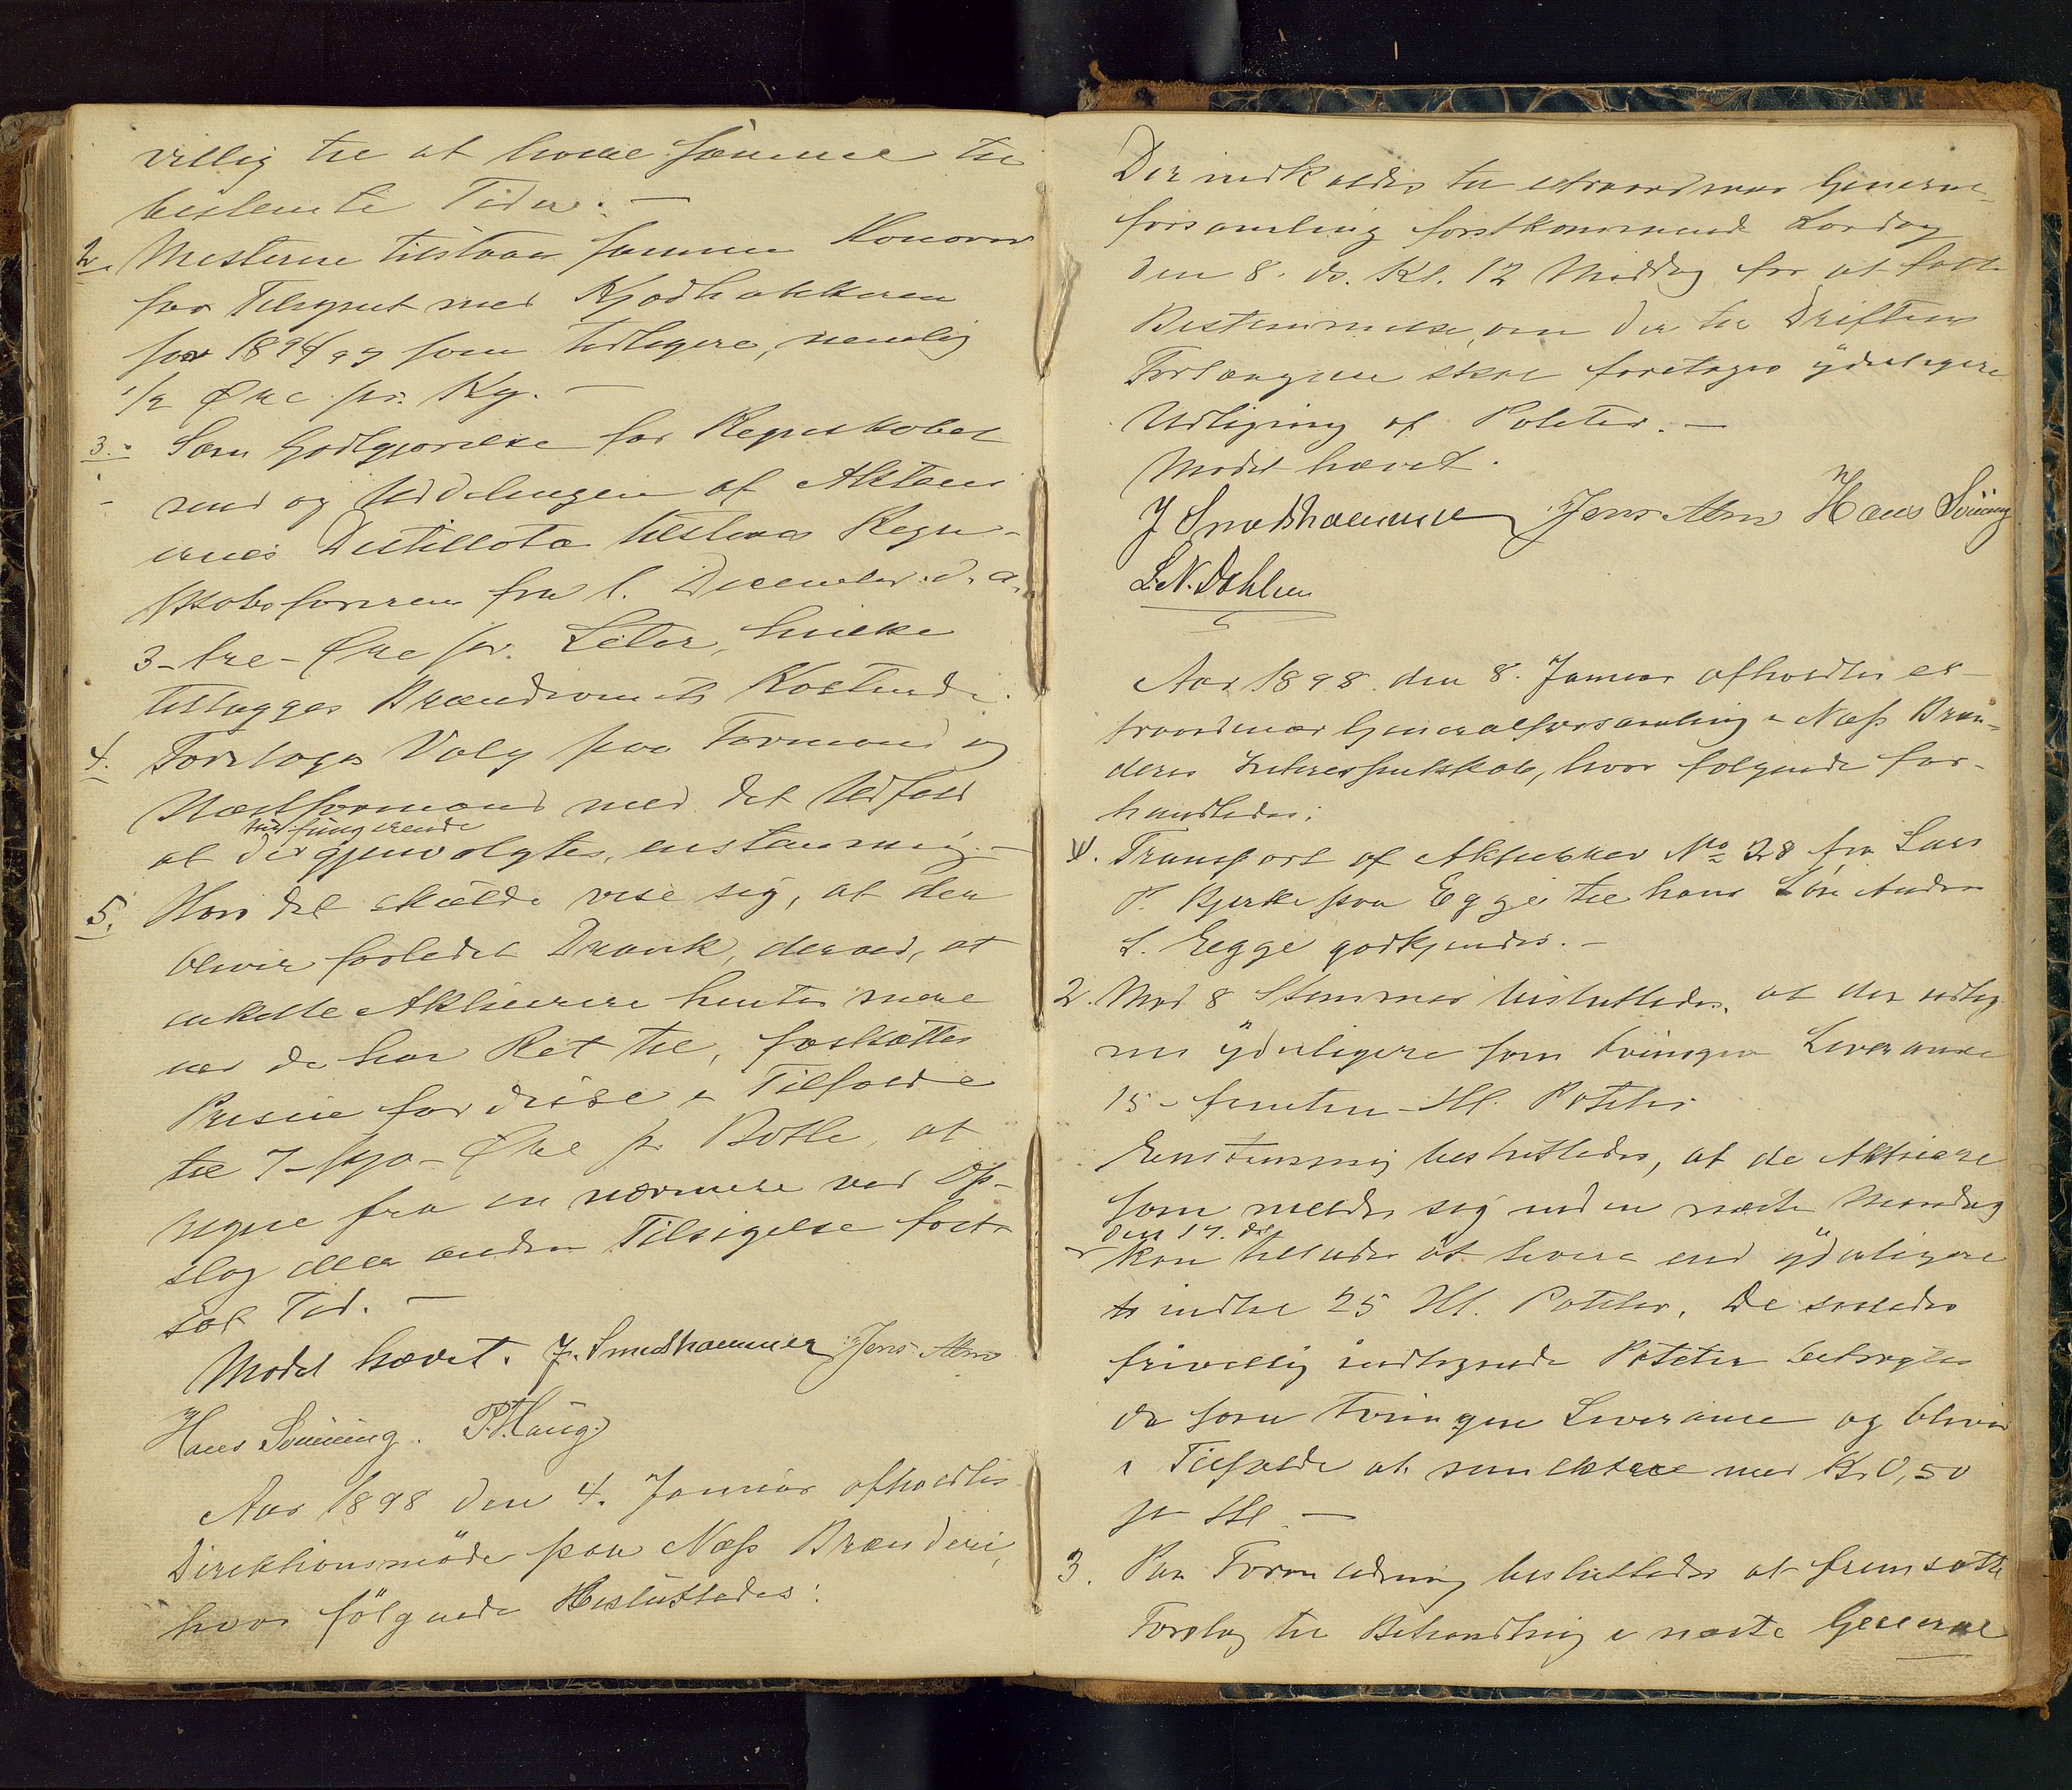 villig til at holde samme til
bestemte Tider. —
2. Mesterne tilstaaes samme Honorar
for Tilsynet med Kjødhakkeren
for 1896/97 som tidligere, nemlig
1/2 Øre pr. Kg. —
3. Som Godtgjørelse for Regnskabet
med og Uddelingen af Aktieei-
ernes Destillata tilstaaes Regn-
skabsføreren fra 1. December d. a.
3 - tre - Øre pr. Liter, hvilke
tillægges Brændevinets Kostende.
4. Foretoges Valg paa Formand og
Næstformand med det Udfald
at de nufungerende gjenvalgtes, enstemmig. —
5. Hvis det skulde vise sig, at den
bliver forledet Drank, derved, at
enkelte Aktieeiere henter mere
end de har Ret til, fastsættes
Prisen for disse i Tilfælde
til 7 - syv - Øre pr Bøtte, at
regne fra en nærmere ved Op-
slag eller anden Tilsigelse fast-
sat Tid. —
Mødet hævet. J. Smedshammer Jens Alm
Hans Sönning. P. Haug.
Aar 1898 den 4. Januar afholdtes
Direktionsmöde paa Næss Brænderi,
hvor fölgende Besluttedes:
Der indkaldes til extraordinær General-
forsamling førstkommende Lørdag
den 8. ds. Kl. 12 Middag for at fatte
Bestemmelse, om der til Driftens
Forlængelse skal foretages yderligere
Udligning af Poteter. —
Mødet hævet.
J Smedshammer Jens Alm Hans Sönning
L. N. Dahlen
Aar 1898 den 8. Januar afholdtes ex-
traordinær Generalforsamling i Næss Bræn-
deris Interessentskab, hvor følgende for-
handledes:
1. Transport af Aktiebrev No 28 fra Lars
P. Bjerke paa Egge til hans Søn Anders
L. Egge godkjendes. —
2. Med 8 Stemmer besluttedes, at der udlig-
nes yderligere som tvungen Leverance
15 - femten - Hl. Poteter
Enstemmig besluttedes, at de Aktieeiere
som melder sig inden næste Mandag
den 17. ds
kan tillades at levere end yderligere
indtil 25 Hl. Poteter. De saaledes
frivillig indtegnede Poteter betragtes
da som tvungen Leverance og bliver
i Tilfælde at mulktere med Kr. 0,50
pr Hl. —
3. Paa Foranledning besluttedes at fremsætte
Forslag til Behandling i næste General